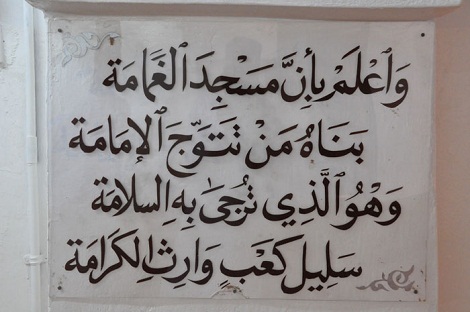 وَٱعْلَمْ بِأَنَّ مَسْجِدَ ٱلْغَمَامَة
بَنَاهُ مَنْ تَتَوَّجَ ٱلإِمَامَة
وَهْوَ ٱلَّذِي تُرْجَىٰ بِهِ ٱلسَلامَة
سَلِيلُ كَعْبٍ وَارِثُ ٱلكَرَامَة